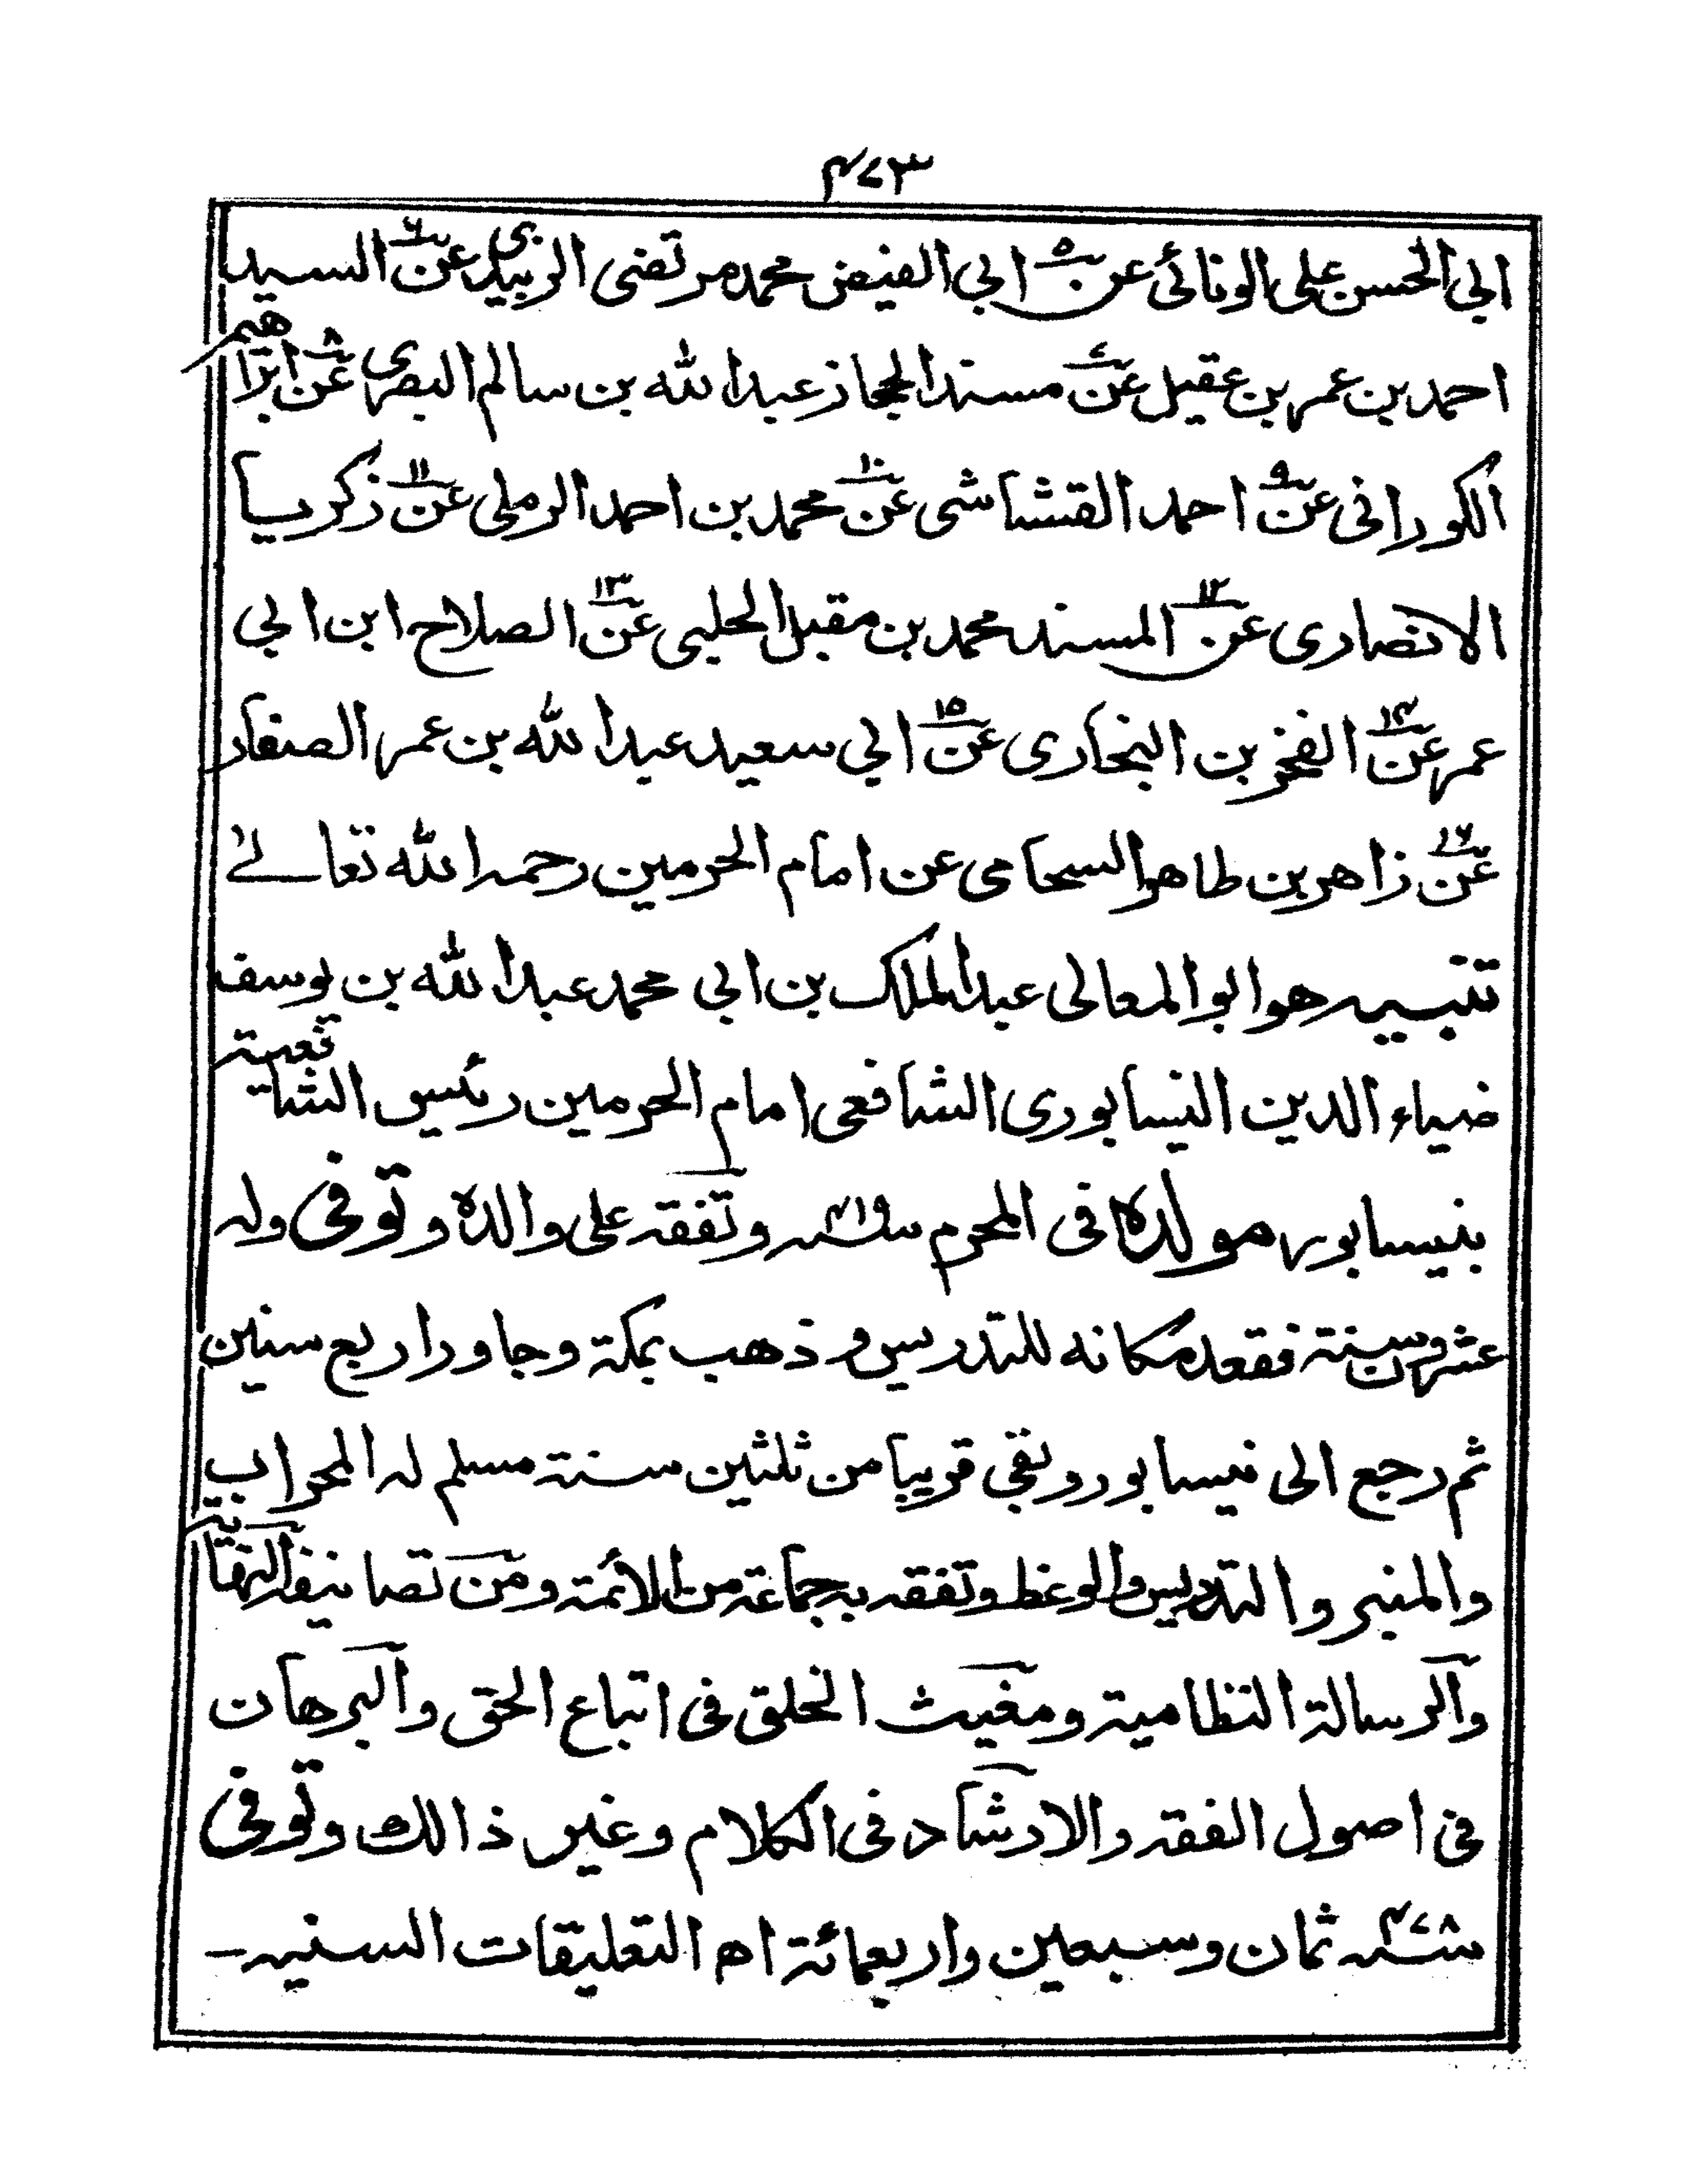 ٤٧٣
ابي الحسن علي الونائى عن ٥ ابي الفيض محمد مرتضى الزبيدى عن ٦ السيد
احمد بن عمر بن عقيل عن ٧ مسند الحجاز عبد الله بن سالم البصرى عن ٨ ابراهيم
الكورانى عن ٩ احمد القشاشى عن ١٠ محمد بن احمد الرملى عن ١١ زكريا
الانصارى عن ١٢ المسند محمد بن مقبل الحلبى عن ١٣ الصلاح ابن ابي
عمر عن ١٤ الفخر بن البخارى عن ١٥ ابي سعيد عبد الله بن عمر الصفار
عن ١٦ زاهر بن طاهر السحامى عن امام الحرمين رحمه الله تعالے
تنبيه هو ابو المعالى عبد الملك بن ابي محمد عبد الله بن يوسف
ضياء الدين النيسابورى الشافعى امام الحرمين رئيس الشافعية
بنيسابور مولده فى المحرم سنه ٤١٩ وتفقه على والده وتوفى وله
عشرون سنة فقعد مكانه للتدريس و ذهب بمكة وجاور اربع سنين
ثم رجع الى نيسابور وبقي قريبا من ثلثين سنة مسلم له المحراب
والمنبر والتدريس والوعظ وتفقه به جماعة من الائمة ومن تصانيفه النهاية
والرسالة النظامية ومغيث الخلق فى اتباع الحق والبرهان
فى اصول الفقه والارشاد فى الكلام وغير ذالك وتوفى
سنه ٤٧٨ ثمان وسبعين واربعمائة اه التعليقات السنيه -